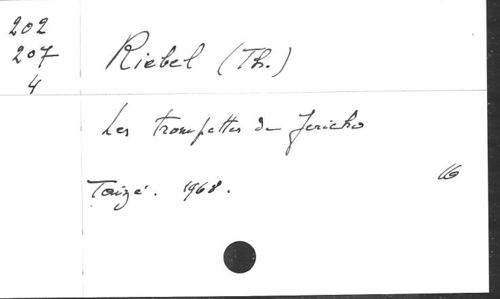 202
207
4
Riebel (Th.)
Les trompettes de Jericho
Taizé. 1968.
16